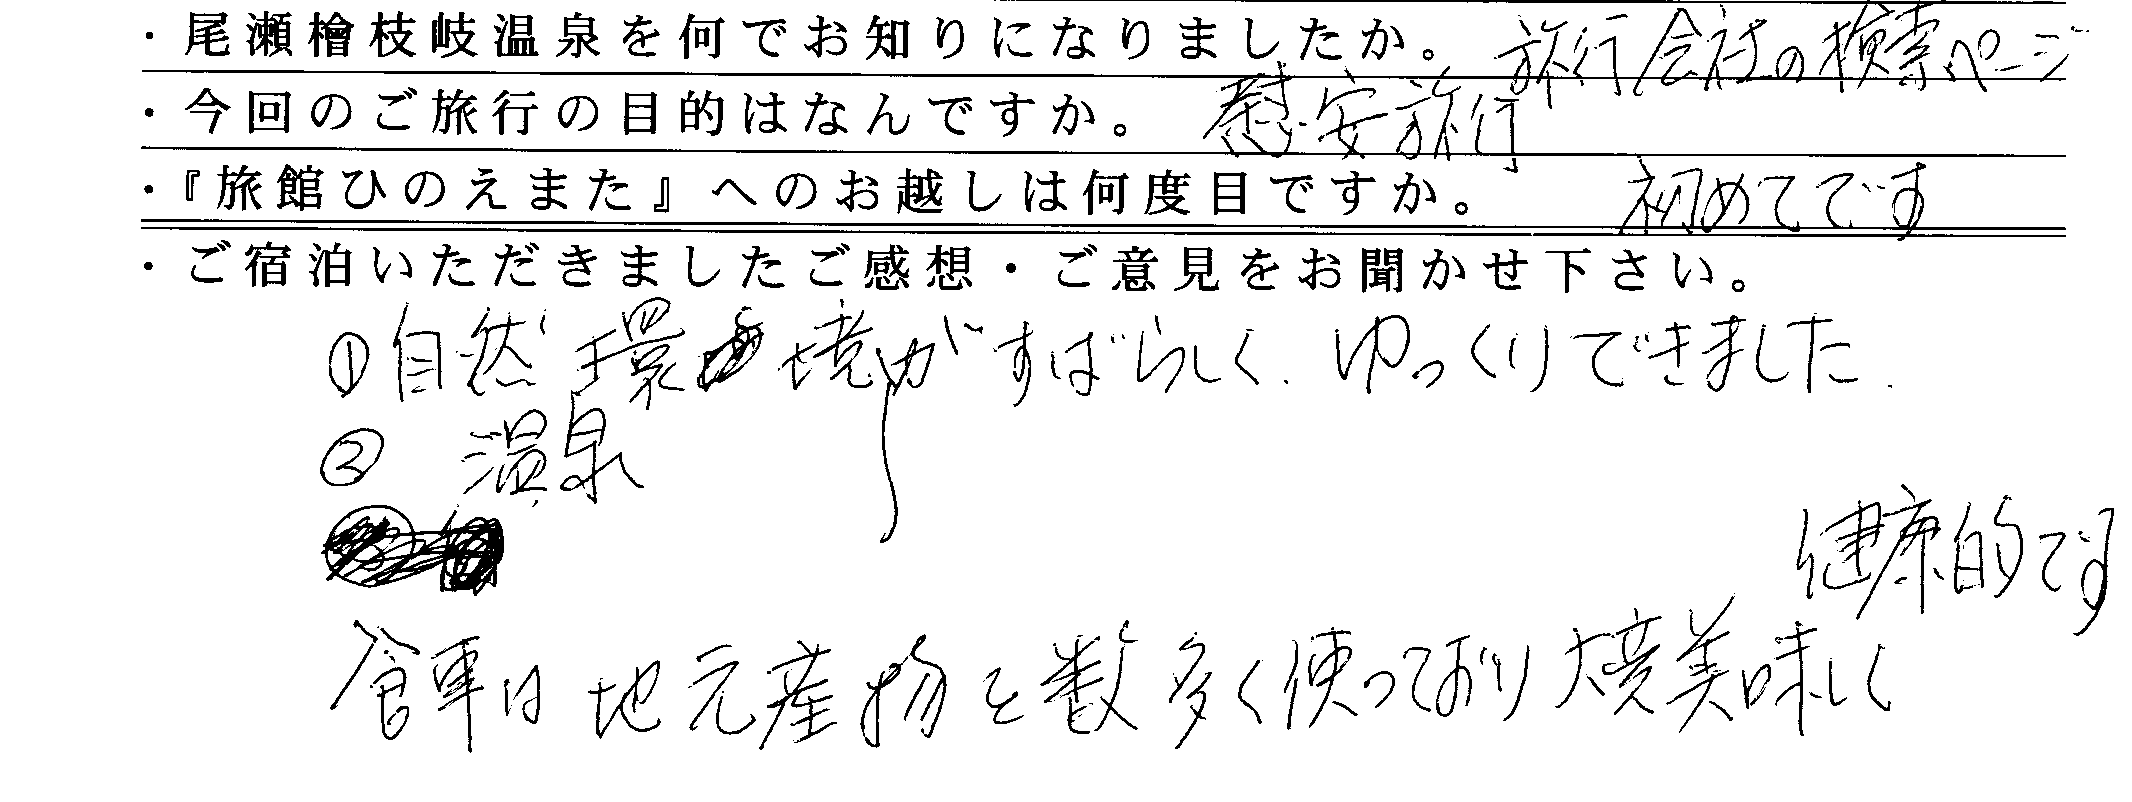 ・尾瀬檜枝岐温泉を何でお知りになりましたか。 旅行会社の検索ページ
・今回のご旅行の目的はなんですか。 慰安旅行
・『旅館ひのえまた』へのお越しは何度目ですか。 初めてです
・ご宿泊いただきましたご感想・ご意見をお聞かせ下さい。
①自然環境がすばらしく.ゆっくりできました.
② 温泉
食事は地元産物を数多く使っており大変美味しく
健康的です